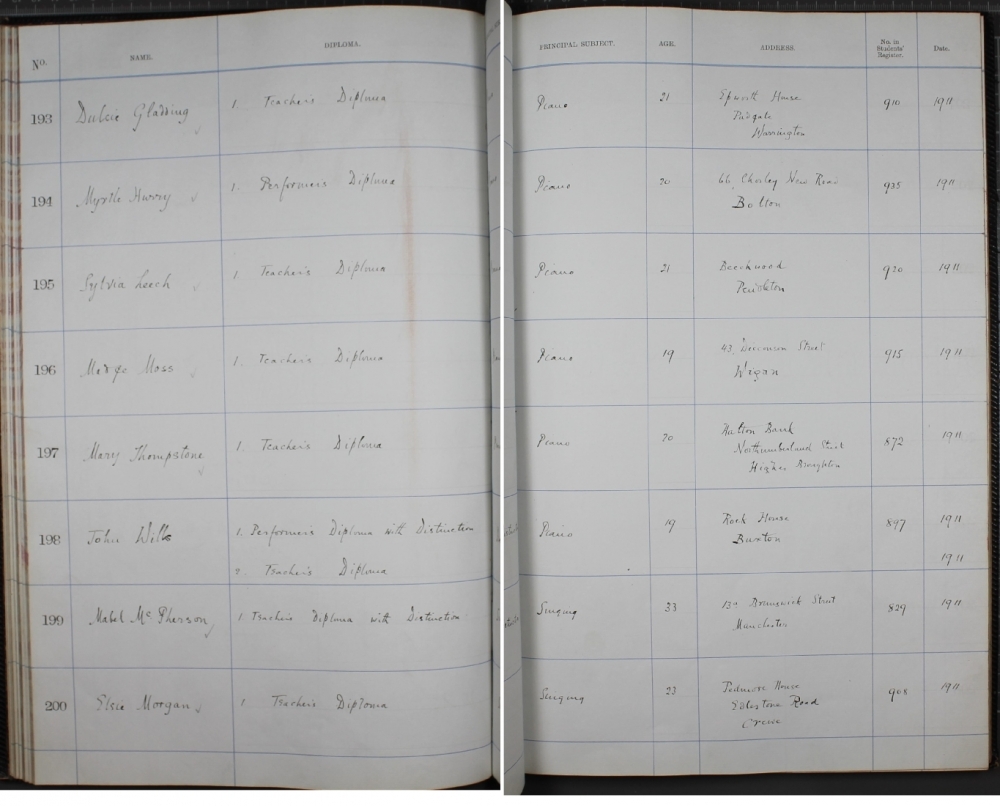 No. NAME. DIPLOMA. PRINCIPAL SUBJECT. AGE. ADDRESS. No. in Students' Register. Date.
193 Dulcie Gladding 1. Teacher's Diploma Piano 21 Epworth House 910 1911
Padgate
Warrington
194 Myrtle Hurry 1. Performer's Diploma Piano 20 66, Chorley New Road 925 1911
Bolton
195 Sylvia Leech 1. Teacher's Diploma Piano 21 Beechwood 920 1911
Pendleton
196 Madge Moss 1. Teacher's Diploma Piano 19 43, Street 915 1911
Wigan
197 Mary Thompstone 1. Teacher's Diploma Piano 20 Bank 872 1911
Northumberland Street
Higher Broughton
198 John Wills 1. Performer's Diploma with Distinction Piano 19 Rock House 897 1911
Buxton
2. Teacher's Diploma 1911
199 Mabel McPherson 1. Teacher's Diploma with Distinction Singing 33 Brunswick Street 829 1911
Manchester
200 Elsie Morgan 1. Teacher's Diploma Singing 23 Pedmore House 908 1911
Edlestone Road
Crewe